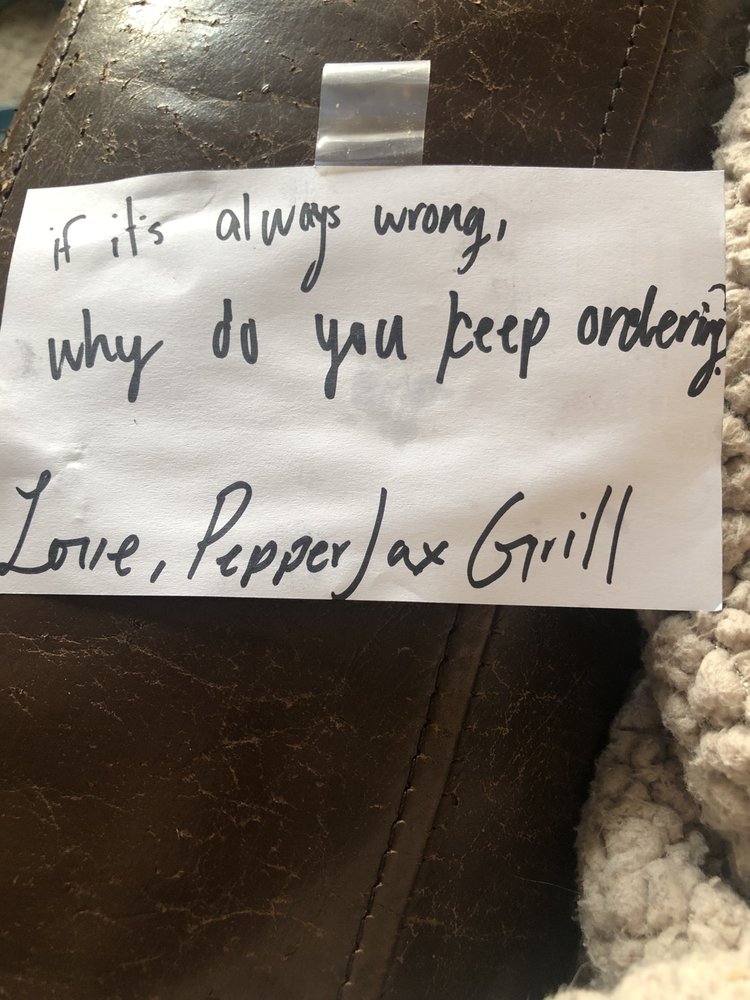 if it's always wrong,
why do you keep ordering?
Love, PepperJax Grill